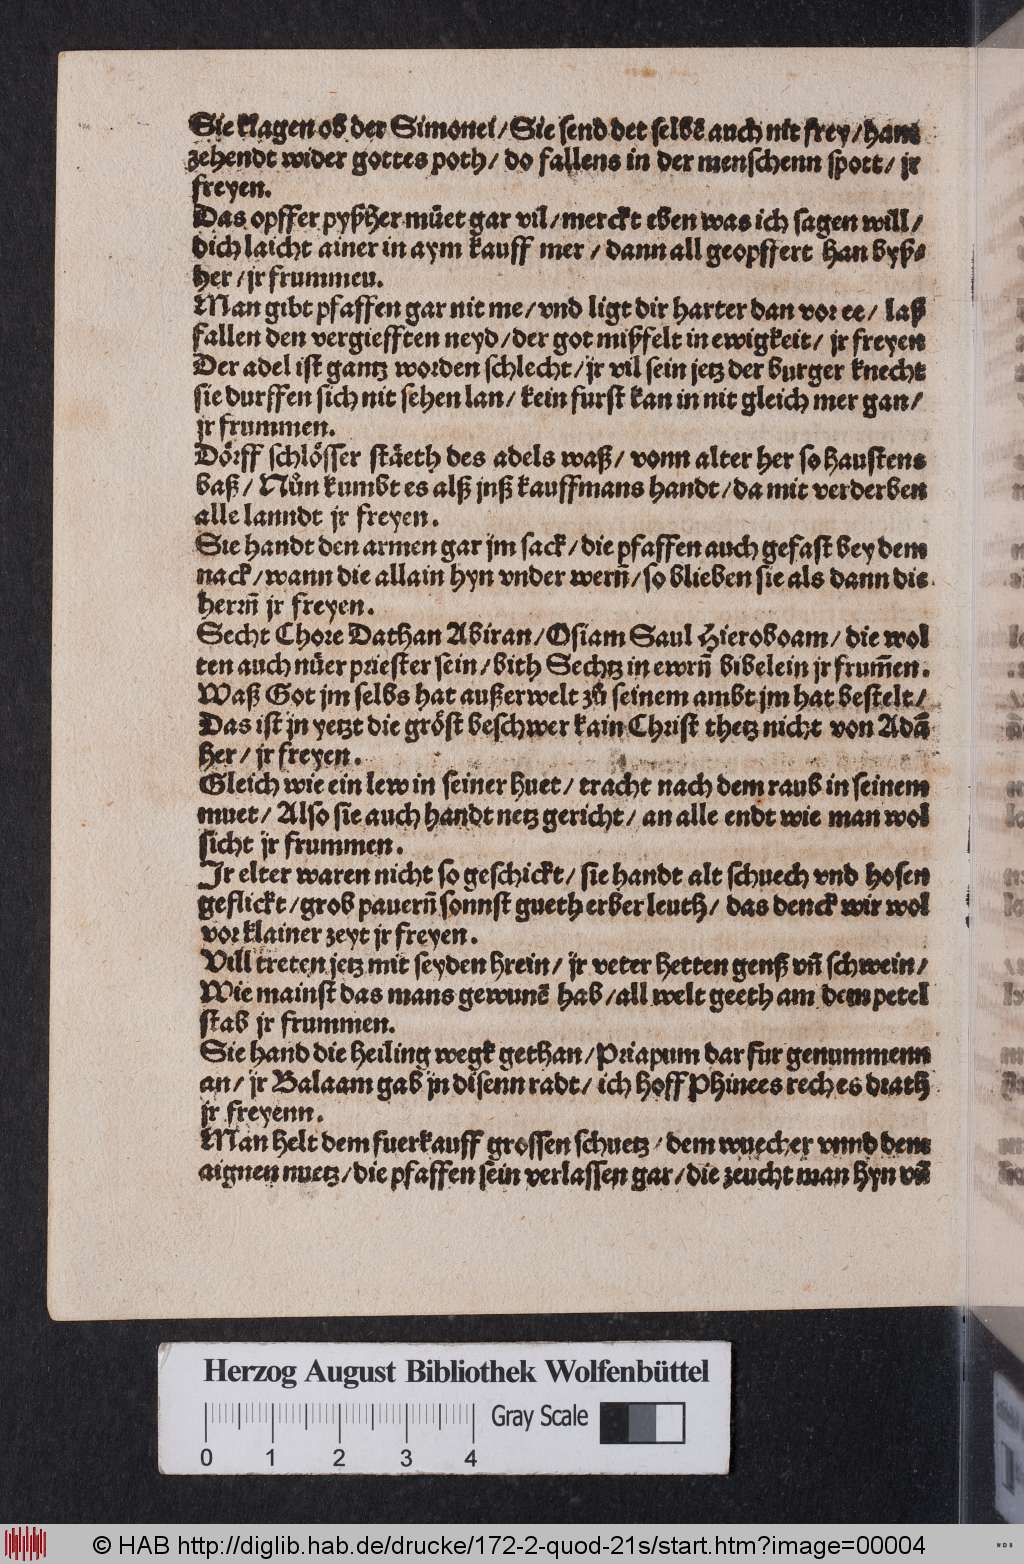 Sie klagen ob der Simonei/Sie send det selbẽ auch nit frey/hant
zehendt wider gottes poth/ do fallens in der menschenn spott/ jr
freyen.
Das opffer pyßher müet gar vil/merckt eben was ich sagen will/
dich laicht ainer in aym kauff mer/ dann all geopffert han byß-
her/jr frummeu.
Man gibt pfaffen gar nit me/vnd ligt dir harter dan vor ee/ laß
fallen den vergiefften neyd/der got mißfelt in ewigkeit/ jr freyen
Der adel ist gantz worden schlecht/jr vil sein jetz der burger knecht
sie durffen sich nit sehen lan/ kein furst kan in nit gleich mer gan/
jr frummen.
Dörff schlösser stäeth des adels waß/ vonn alter her so haustens
baß/ Nůn kumbt es alß jnß kauffmans handt/da mit verderben
alle lanndt jr freyen.
Sie handt den armen gar jm sack/die pfaffen auch gefast bey dem
nack/wann die allain hyn vnder wern̄/so blieben sie als dann die
herrn̄ jr freyen.
Secht Chore Dathan Abiran/Osiam Saul Hieroboam/die wol
ten auch nüer priester sein/bith Sechtz in ewrn̄ bibelein jr frum̄en.
Waß Got jm selbs hat außerwelt zů seinem ambt jm hat bestelt/
Das ist jn yetzt die gröst beschwer kain Christ thetz nicht von Adã
her/ jr freyen.
Gleich wie ein lew in seiner huet/ tracht nach dem raub in seinem
muet/ Also sie auch handt netz gericht/ an alle endt wie man wol
sicht jr frummen.
Jr elter waren nicht so geschickt/ sie handt alt schuech vnd hosen
geflickt/grob pauern̄ sonnst gueth erber leuth/ das denck wir wol
vor klainer zeyt jr freyen.
Vill treten jetz mit seyden hrein/ jr veter hetten genß vn̄ schwein/
Wie mainst das mans gewunẽ hab/all welt geeth am dem petel
stab jr frummen.
Sie hand die heiling wegk gethan/Priapum dar fur genummenn
an/ jr Balaam gab jn disenn radt/ ich hoff Phinees rech es drath
jr freyenn.
Man helt dem fuerkauff grossen schuetz/dem wuecher vnnd dem
aignen nuetz/die pfaffen sein verlassen gar/die zeucht man hyn vn̄
Herzog August Bibliothek Wolfenbüttel
Gray Scale
0 1 2 3 4
© HAB http://diglib.hab.de/drucke/172-2-quod-21s/start.htm?image=00004